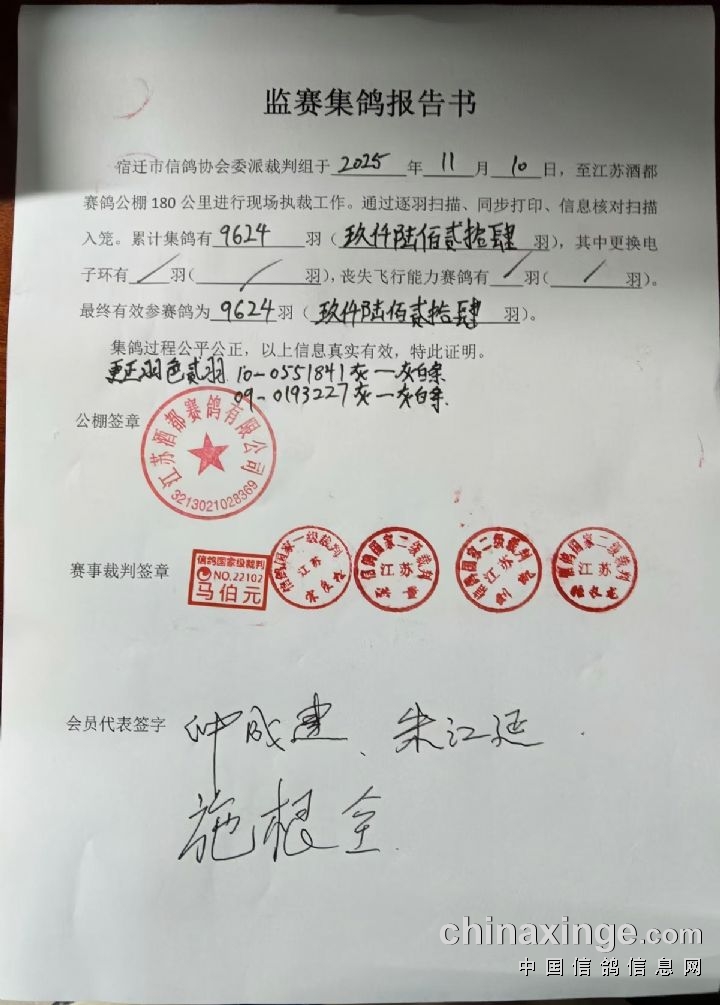 监赛集鸽报告书
宿迁市信鸽协会委派裁判组于 2025 年 11 月 10 日，至江苏酒都
赛鸽公棚 180 公里进行现场执裁工作。通过逐羽扫描、同步打印、信息核对扫描
入笼。累计集鸽有 9624 羽（玖仟陆佰贰拾肆 羽），其中更换电
子环有 / 羽（ / 羽），丧失飞行能力赛鸽有 / 羽（ / 羽）。
最终有效参赛鸽为 9624 羽（玖仟陆佰贰拾肆 羽）。
集鸽过程公平公正，以上信息真实有效，特此证明。
更正羽色贰羽 10-0551841灰一灰白条
09-0193227灰一灰白条
公棚签章
江苏酒都赛鸽有限公司
3213021028369
赛事裁判签章
信鸽国家级裁判
NO.22102
马伯元
信鸽国家一级裁判
江苏
信鸽国家二级裁判
江苏
信鸽国家二级裁判
江苏
信鸽国家二级裁判
江苏
会员代表签字 仲成建、朱江延
施根全
chinaxinge.com
中国信鸽信息网